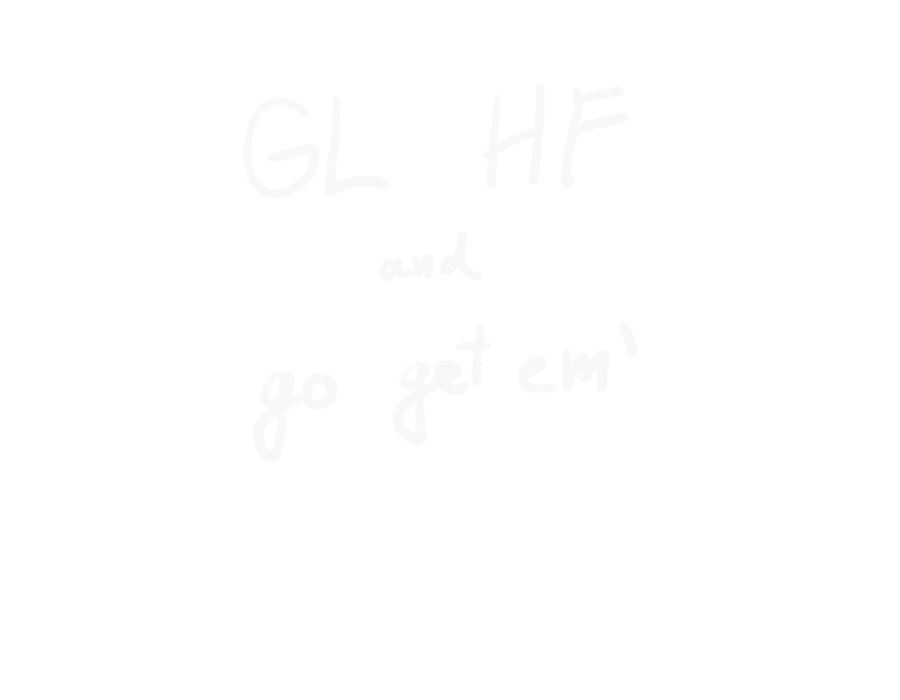 GL HF
and
go get em'